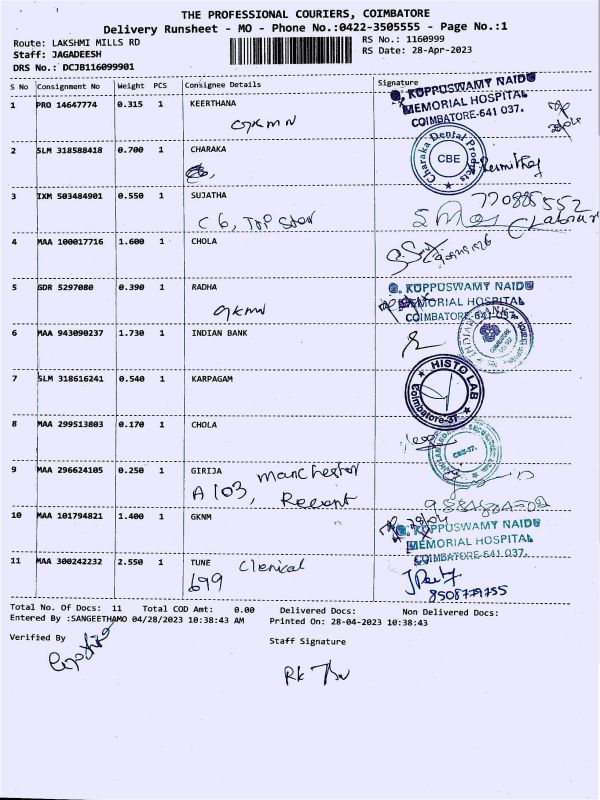 THE PROFESSIONAL COURIERS, COIMBATORE
Delivery Runsheet - MO - Phone No.:0422-3505555 - Page No.:1
Route: LAKSHMI MILLS RD
RS No.: 1160999
Staff: JAGADEESH
RS Date: 28-Apr-2023
DRS No.: DCJB116099901
S No Consignment No Weight PCS Consignee Details Signature
1 PRO 14647774 0.315 1 KEERTHANA
GKMN
G. KUPPUSWAMY NAIDU
MEMORIAL HOSPITAL
COIMBATORE-641 037.
2 SLM 318588418 0.700 1 CHARAKA
Charaka Dental Products
CBE
3 IXM 503484901 0.550 1 SUJATHA
C 6, Top Star
4 MAA 100017716 1.600 1 CHOLA
5 GDR 5297080 0.390 1 RADHA
GKMN
G. KUPPUSWAMY NAIDU
MEMORIAL HOSPITAL
COIMBATORE-641 037.
6 MAA 943090237 1.730 1 INDIAN BANK
INDIAN BANK
7 SLM 318616241 0.540 1 KARPAGAM
HISTO LAB
Coimbatore-37
8 MAA 299513803 0.170 1 CHOLA
9 MAA 296624105 0.250 1 GIRIJA
Manchester
A 103, Recent
10 MAA 101794821 1.400 1 GKNM
G. KUPPUSWAMY NAIDU
MEMORIAL HOSPITAL
COIMBATORE-641 037.
11 MAA 300242232 2.550 1 TUNE
Clenical
699
8508779755
Total No. Of Docs: 11 Total COD Amt: 0.00 Delivered Docs: Non Delivered Docs:
Entered By :SANGEETHAMO 04/28/2023 10:38:43 AM Printed On: 28-04-2023 10:38:43
Verified By
Staff Signature